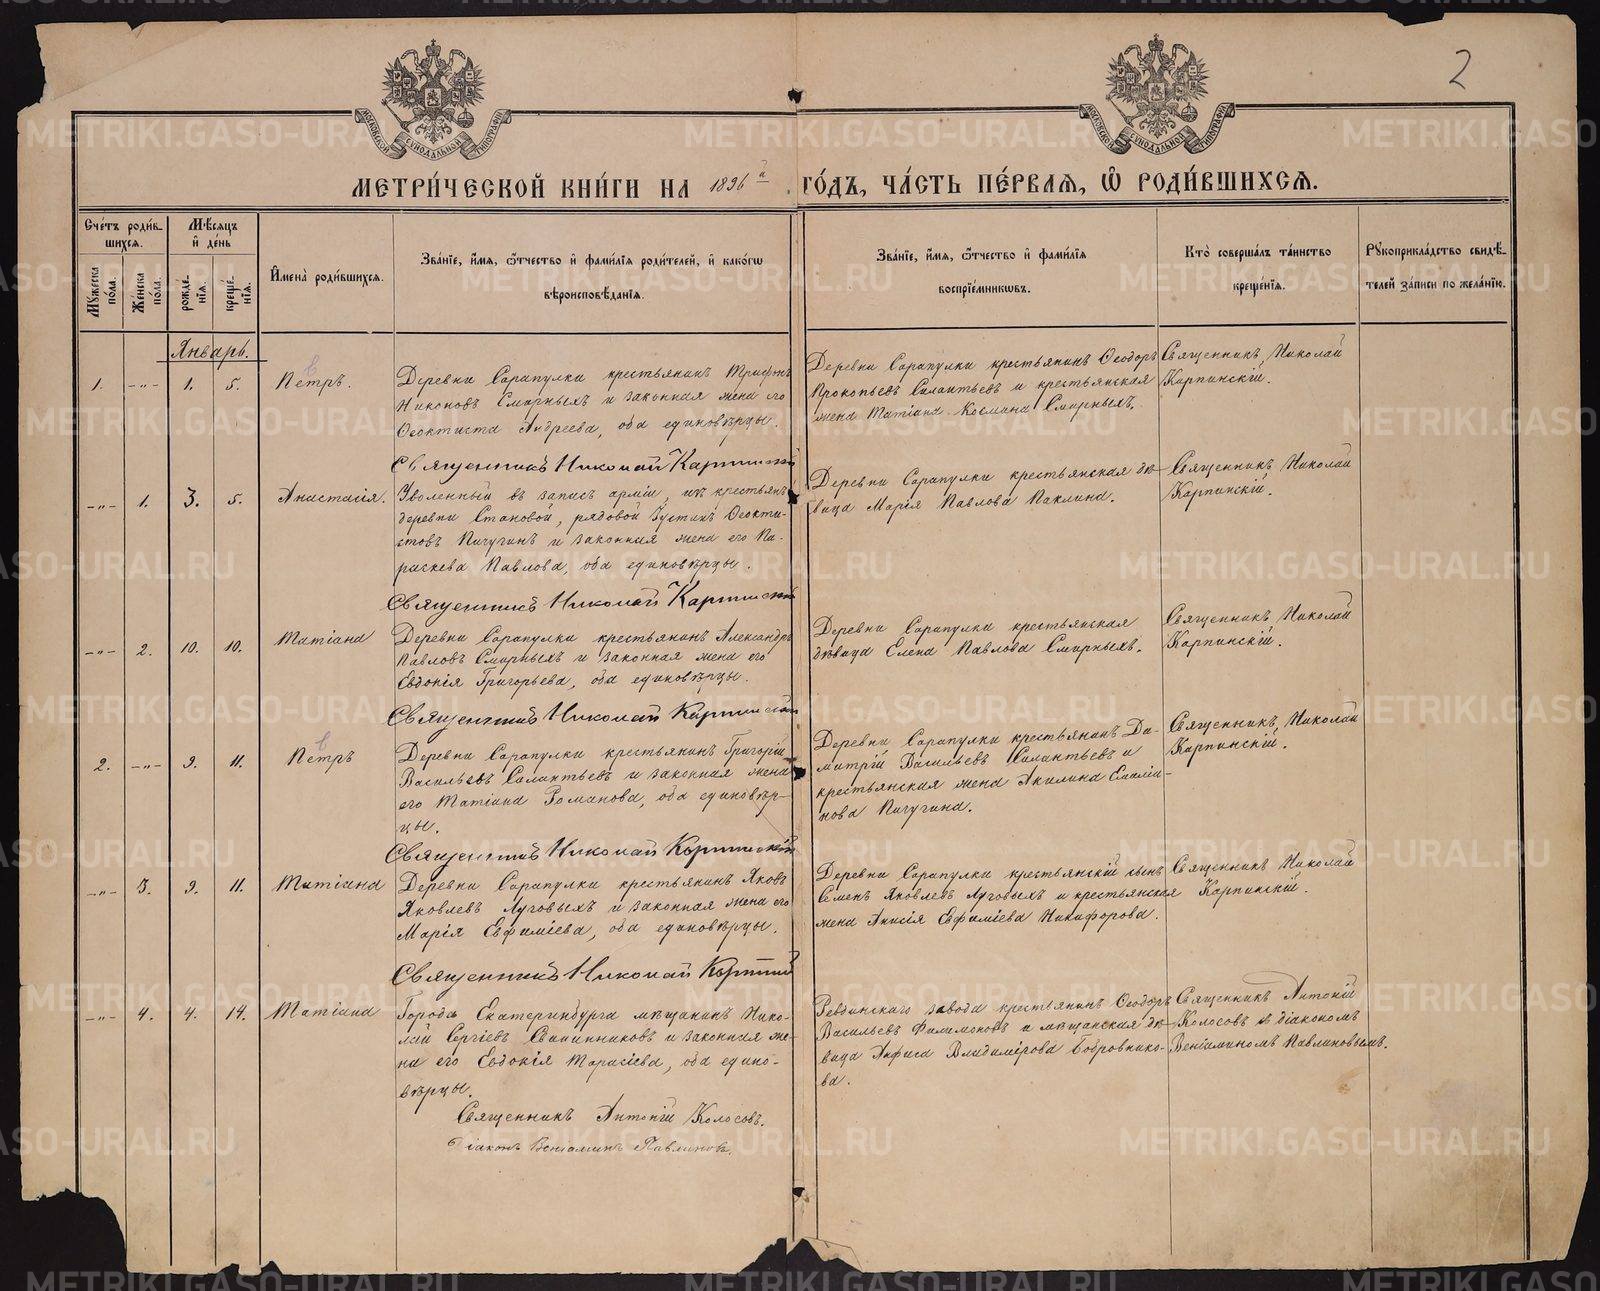 2
МОСКОВСКОЙ СѴНОДАЛЬНОЙ ТИПОГРАФІИ
МОСКОВСКОЙ СѴНОДАЛЬНОЙ ТИПОГРАФІИ
МЕТРИ́ЧЕСКОЙ КНИ́ГИ НА 1896й ГО́ДЪ, ЧА́СТЬ ПЕ́РВАЯ, Ѡ РОДИ́ВШИХСЯ.
Сче́тъ роди́в-
шихся.
Мꙋжеска по́ла.
Же́нска по́ла.
Мѣ́сяцъ
и҆ де́нь
рожде́-
нїя.
креще́-
нїя.
И҆мена̀ роди́вшихся.
Зва́нїе, и҆́мя, ѻ҆́тчество и҆ фами́лїя роди́телей, и҆ како́гѡ
вѣроисповѣ́данїя.
Зва́нїе, и҆́мя, ѻ҆́тчество и҆ фами́лїя
воспрїе́мникѡвъ.
Кто̀ соверша́лъ та́инство
креще́нїя.
Рꙋкоприкла́дство свидѣ́-
телей за́писи по жела́нїю.
Январь.
1. -„- 1. 5. Петръ.
Деревни Сарапулки крестьянинъ Трифонъ
Никоновъ Смирныхъ и законная жена его
Ѳеоктиста Андреева, оба единовѣрцы.
Священникъ Николай Карпинскій
Деревни Сарапулки крестьянинъ Ѳеодоръ
Прокопьевъ Силантьевъ и крестьянская
жена Татіана Космина Смирныхъ.
Священникъ Николай
Карпинскій.
-„- 1. 3. 5. Анастасія.
Уволенный въ запасъ арміи, изъ крестьянъ
деревни Становой, рядовой Іустинъ Ѳеокти-
стовъ Пичугинъ и законная жена его Па-
раскева Павлова, оба единовѣрцы.
Священникъ Николай Карпинскій
Деревни Сарапулки крестьянская дѣ-
вица Марія Павлова Паклина.
Священникъ Николай
Карпинскій.
-„- 2. 10. 10. Татіана
Деревни Сарапулки крестьянинъ Александръ
Павловъ Смирныхъ и законная жена его
Евдокія Григорьева, оба единовѣрцы.
Священникъ Николай Карпинскій
Деревни Сарапулки крестьянская
дѣвица Елена Павлова Смирныхъ.
Священникъ Николай
Карпинскій.
2. -„- 9. 11. Петръ
Деревни Сарапулки крестьянинъ Григорій
Васильевъ Силантьевъ и законная жена
его Татіана Романова, оба единовѣр-
цы.
Священникъ Николай Карпинскій
Деревни Сарапулки крестьянинъ Ди-
митрій Васильевъ Силантьевъ и
крестьянская жена Акилина Емелья-
нова Пичугина.
Священникъ Николай
Карпинскій.
-„- 3. 9. 11. Татіана
Деревни Сарапулки крестьянинъ Яковъ
Яковлевъ Луговыхъ и законная жена его
Марія Евфиміева, оба единовѣрцы.
Священникъ Николай Карпинскій
Деревни Сарапулки крестьянскій сынъ
Семенъ Яковлевъ Луговыхъ и крестьянская
жена Анисія Евфиміева Никифорова.
Священникъ Николай
Карпинскій.
-„- 4. 4. 14. Татіана
Города Екатеринбурга мѣщанинъ Нико-
лай Сергіевъ Свининниковъ и законная же-
на его Евдокія Тарасіева, оба едино-
вѣрцы.
Священникъ Антоній Колосовъ.
Діаконъ Веніаминъ Павлиновъ.
Ревдинскаго завода крестьянинъ Ѳеодоръ
Васильевъ Филимоновъ и мѣщанская дѣ-
вица Анфиса Владимірова Бобровнико-
ва.
Священникъ Антоній
Колосовъ съ діакономъ
Веніаминомъ Павлиновымъ.
METRIKI.GASO-URAL.RU